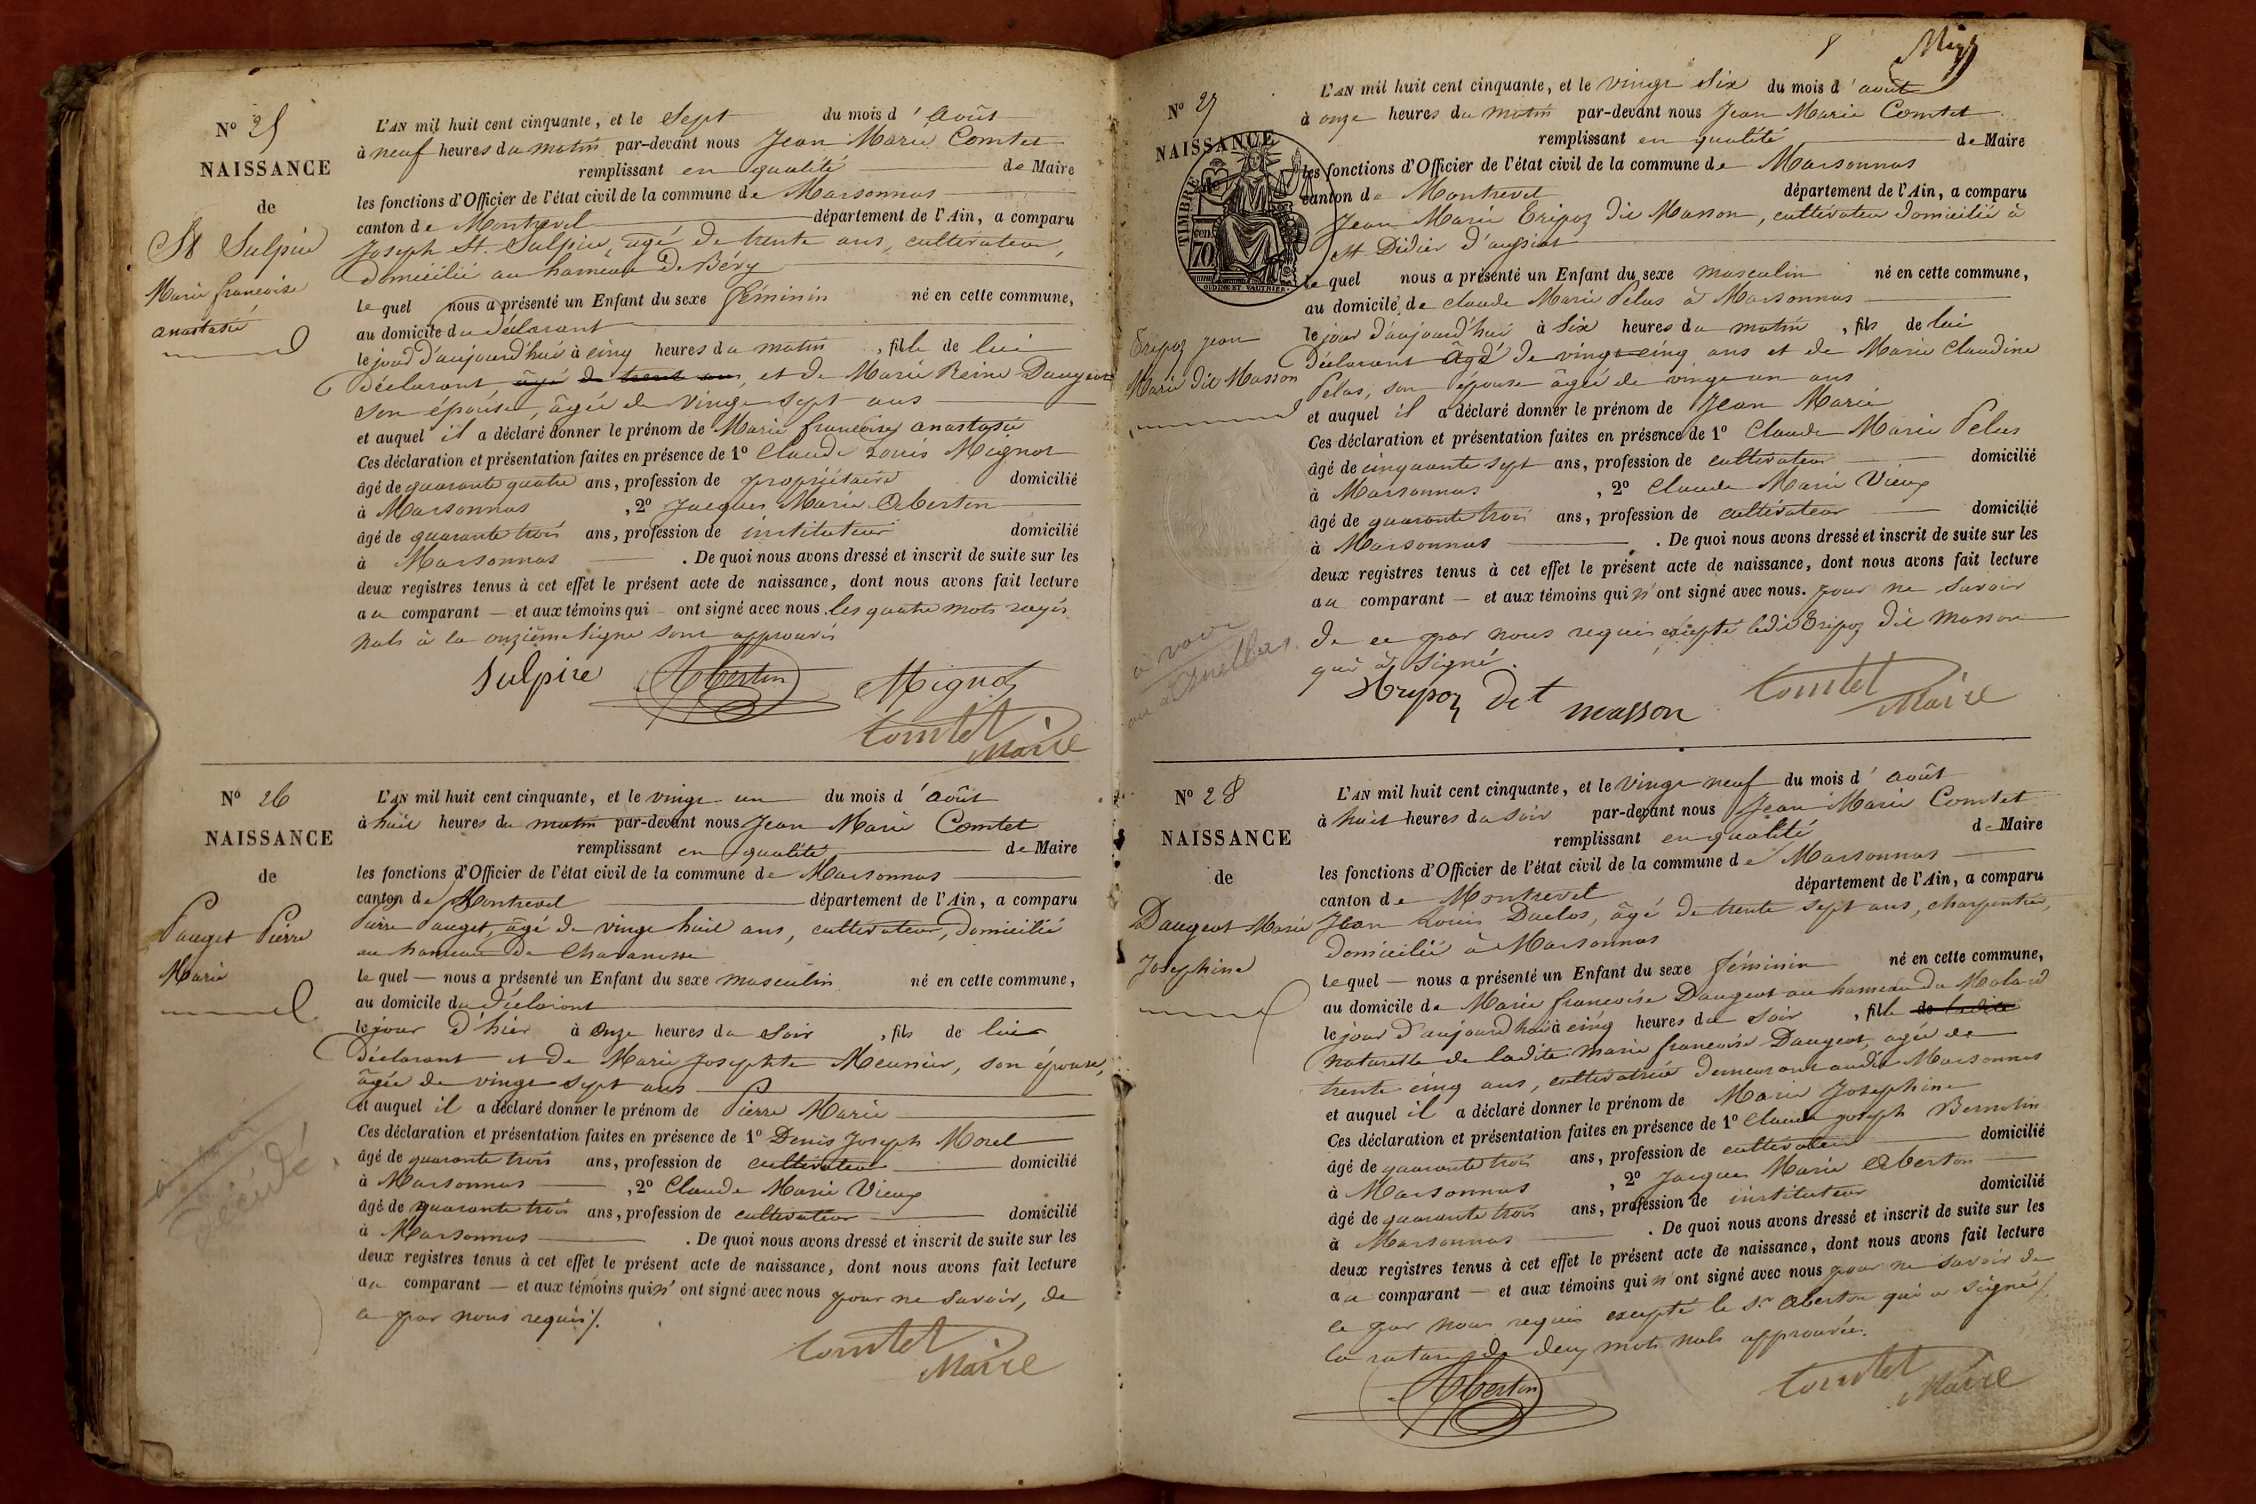 N° 25
NAISSANCE
de
St Sulpice
Marie francoise
anastasie
L'AN mil huit cent cinquante, et le sept du mois d'août
à neuf heures du matin par-devant nous Jean Marie Comtet
remplissant en qualité de Maire
les fonctions d'Officier de l'état civil de la commune de Marsonnas
canton de Montrevel département de l'Ain, a comparu
Joseph St. Sulpice, âgé de trente ans, cultivateur,
domicilié au hameau de Béry
lequel nous a présenté un Enfant du sexe féminin né en cette commune,
au domicile du déclarant
le jour d'aujourd'hui à cinq heures du matin, fille de lui
déclarant âgé de trente ans, et de Marie Reine Daugeur
son épouse, âgée de vingt sept ans
et auquel il a déclaré donner le prénom de Marie francoise anastasie
Ces déclaration et présentation faites en présence de 1° Claude Louis Mignot
âgé de quarante quatre ans, profession de propriétaire domicilié
à Marsonnas, 2° Jacques Marie Aberton
âgé de quarante trois ans, profession de instituteur domicilié
à Marsonnas. De quoi nous avons dressé et inscrit de suite sur les
deux registres tenus à cet effet le présent acte de naissance, dont nous avons fait lecture
au comparant et aux témoins qui ont signé avec nous les quatre mots rayés
nuls à la onzième ligne sont approuvés
Sulpice Aberton Mignot
Comtet
Maire
N° 26
NAISSANCE
de
Pauget Pierre
Marie
L'AN mil huit cent cinquante, et le vingt un du mois d'août
à huit heures du matin par-devant nous Jean Marie Comtet
remplissant en qualité de Maire
les fonctions d'Officier de l'état civil de la commune de Marsonnas
canton de Montrevel département de l'Ain, a comparu
Pierre Pauget, âgé de vingt huit ans, cultivateur, domicilié
au hameau de Chavanosse
lequel nous a présenté un Enfant du sexe masculin né en cette commune,
au domicile du déclarant
le jour d'hier à onze heures du soir, fils de lui
déclarant et de Marie Josephte Meunier, son épouse,
âgée de vingt sept ans
et auquel il a déclaré donner le prénom de Pierre Marie
Ces déclaration et présentation faites en présence de 1° Denis Joseph Morel
âgé de quarante trois ans, profession de cultivateur domicilié
à Marsonnas, 2° Claude Marie Vieux
âgé de quarante trois ans, profession de cultivateur domicilié
à Marsonnas. De quoi nous avons dressé et inscrit de suite sur les
deux registres tenus à cet effet le présent acte de naissance, dont nous avons fait lecture
au comparant et aux témoins qui n'ont signé avec nous pour ne savoir, de
ce par nous requis/.
Comtet
Maire
8
N° 27
NAISSANCE
TIMBRE
cen. 70
OUDINÉ ET VAUTHIER
Eripoz jean
Marie dit Masson
à voir
L'AN mil huit cent cinquante, et le vingt six du mois d'août
à onze heures du matin par-devant nous Jean Marie Comtet
remplissant en qualité de Maire
les fonctions d'Officier de l'état civil de la commune de Marsonnas
canton de Montrevel département de l'Ain, a comparu
Jean Marie Eripoz dit Masson, cultivateur domicilié à
St Didier d'aussiat
lequel nous a présenté un Enfant du sexe masculin né en cette commune,
au domicile de Claude Marie Pelus à Marsonnas
le jour d'aujourd'hui à six heures du matin, fils de lui
déclarant âgé de vingt cinq ans et de Marie Claudine
Pelus, son épouse âgée de vingt un ans
et auquel il a déclaré donner le prénom de Jean Marie
Ces déclaration et présentation faites en présence de 1° Claude Marie Pelus
âgé de cinquante sept ans, profession de cultivateur domicilié
à Marsonnas, 2° Claude Marie Vieux
âgé de quarante trois ans, profession de cultivateur domicilié
à Marsonnas. De quoi nous avons dressé et inscrit de suite sur les
deux registres tenus à cet effet le présent acte de naissance, dont nous avons fait lecture
au comparant et aux témoins qui n'ont signé avec nous. pour ne savoir
de ce par nous requis excepté ledit Eripoz dit Masson
qui a signé.
Erypoz dit masson
Comtet
Maire
N° 28
NAISSANCE
de
Daugeot Marie
Josephine
L'AN mil huit cent cinquante, et le vingt neuf du mois d'août
à huit heures du soir par-devant nous Jean Marie Comtet
remplissant en qualité de Maire
les fonctions d'Officier de l'état civil de la commune de Marsonnas
canton de Montrevel département de l'Ain, a comparu
Jean Louis Duclos, âgé de trente sept ans, charpentier,
domicilié à Marsonnas
lequel nous a présenté un Enfant du sexe féminin né en cette commune,
au domicile de Marie francoise Daugeot au hameau du Molard
le jour d'aujourd'hui à cinq heures du soir, fille de ladite
naturelle de ladite marie francoise Daugeot, agée de
trente cinq ans, cultivatrice demeurant audit Marsonnas
et auquel il a déclaré donner le prénom de Marie Josephine
Ces déclaration et présentation faites en présence de 1° Claude joseph Bernolin
âgé de quarante trois ans, profession de cultivateur domicilié
à Marsonnas, 2° Jacques Marie Aberton
âgé de quarante trois ans, profession de instituteur domicilié
à Marsonnas. De quoi nous avons dressé et inscrit de suite sur les
deux registres tenus à cet effet le présent acte de naissance, dont nous avons fait lecture
au comparant et aux témoins qui n'ont signé avec nous pour ne savoir de
ce par nous requis excepté le Sr Aberton qui a signé/.
la rature de deux mots nuls approuvée.
Aberton
Comtet
Maire